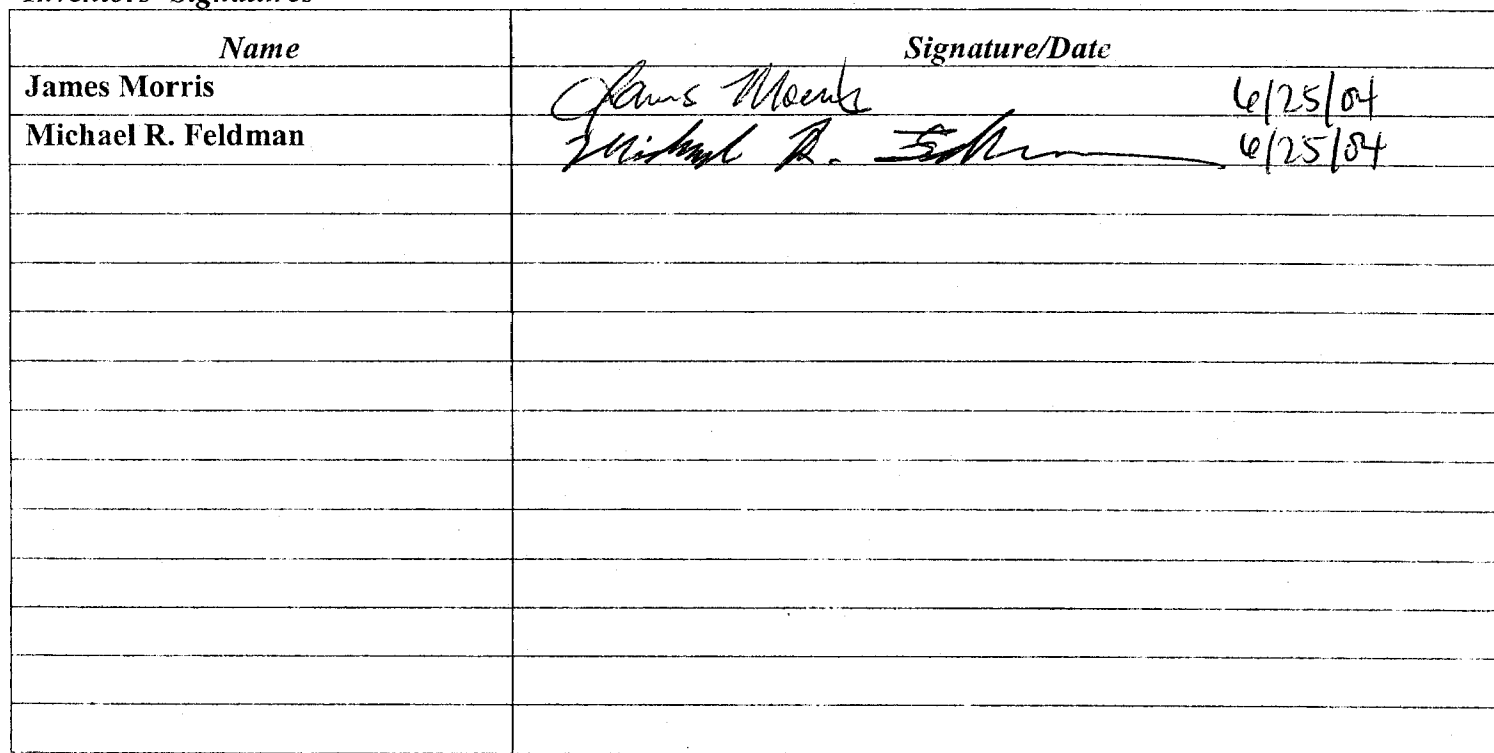 Inventors' Signatures
Name Signature/Date
James Morris James Morris 6/25/04
Michael R. Feldman Michael R. Feldman 6/25/04